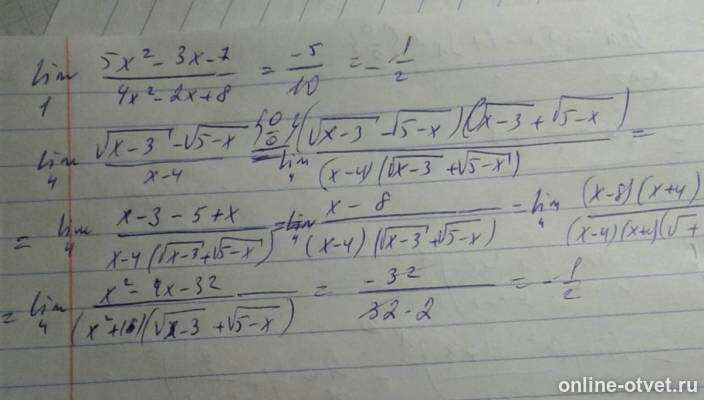 lim 1 (5x² - 3x - 7)/(4x² - 2x + 8) = -5/10 = -1/2
lim 4 (√(x-3) - √(5-x))/(x-4) {0/0} = lim 4 ((√(x-3) - √(5-x))(√(x-3) + √(5-x)))/((x-4)(√(x-3) + √(5-x))) =
= lim 4 (x-3-5+x)/(x-4(√(x-3) + √(5-x))) = lim 4 (x-8)/((x-4)(√(x-3) + √(5-x))) = lim 4 ((x-8)(x+4))/((x-4)(x+4)(√ +
= lim 4 (x² - 4x - 32)/((x²+16)(√(x-3) + √(5-x))) = -32/(32·2) = -1/2
online-otvet.ru